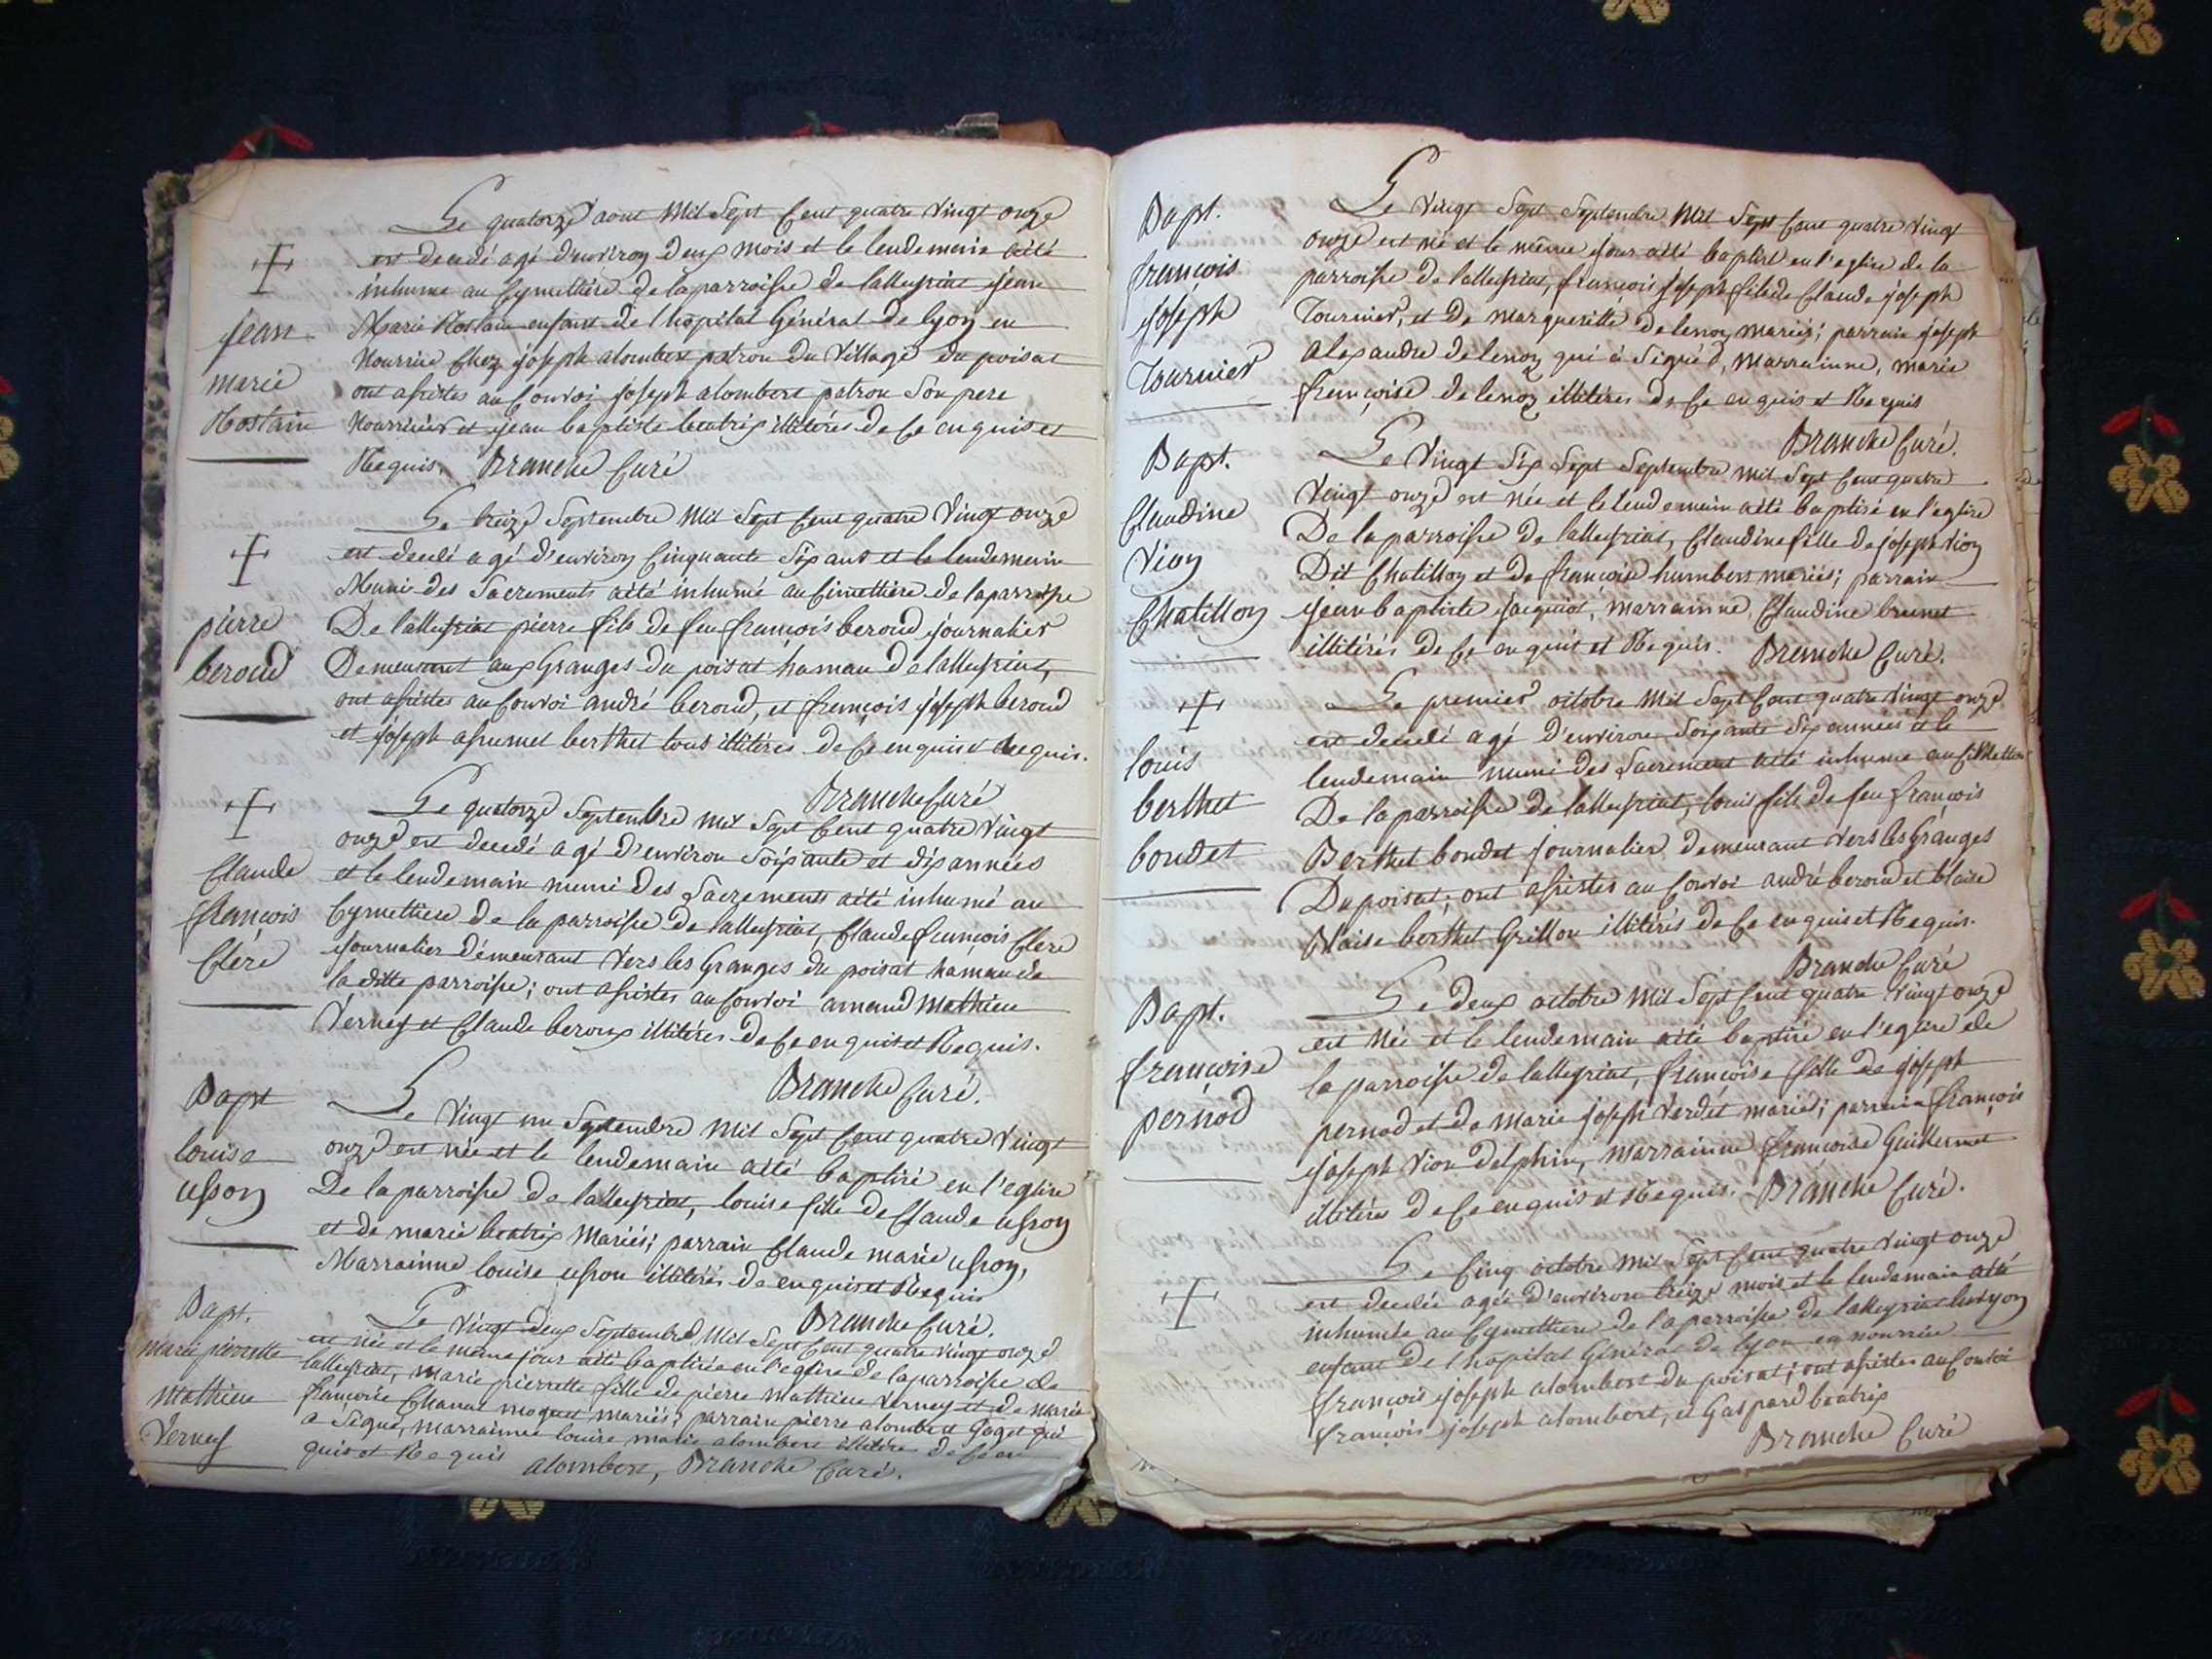 Le quatorze aout Mil Sept Cent quatre Vingt onze
est decedé agé d'environ deux mois et le lendemain aété
inhumé au Cymettiere de la parroisse de lalleyriat jean
Marie Rostain enfant de l'hopital Général de lyon en
Nourrice Chez joseph alombert patron du Village du poisat
ont assistes au Convoi joseph alombert patron Son pere
Nourricier et jean baptiste beatrix illitérés de Ce enquis et
Requis. Branche Curé
jean
marie
Rostain
Le treize Septembre Mil Sept Cent quatre Vingt onze
est decedé agé d'environ Cinquante Six ans et le lendemain
Muni des Sacrements aété inhumé au Cimettiere de la parroisse
De lalleyriat pierre fils de feu françois beroud journalier
Demeurant aux Granges du poisat hamau de lalleyriat,
ont assistes au Convoi andré beroud, et françois joseph beroud
et joseph assumel berthet tous illitérés de Ce enquis et Requis.
Branche Curé
pierre
beroud
Le quatorze Septembre Mil Sept Cent quatre Vingt
onze est decedé agé d'environ Soixante et dix années
et le lendemain muni des Sacrements aété inhumé au
Cymettiere de la parroisse de lalleyriat, Claude françois Clere
journalier démeurant Vers les Granges du poisat hamau de
la ditte parroisse; ont assistes au Convoi amand Mathieu
Verney et Claude beroux illitérés de Ce enquis et Requis.
Branche Curé.
Claude
françois
Clére
Le Vingt un Septembre Mil Sept Cent quatre Vingt
onze est née et le lendemain aété baptisé en l'eglise
De la parroisse de lalleyriat, louise fille de Claude usson
et de marie beatrix Mariés; parrain Claude marie usson,
Marrainne louise usson illitérés de enquis et Requis
Branche Curé.
Bapt
louise
usson
Le Vingt deux Septembre Mil Sept Cent quatre Vingt onze
est née et le même jour aété baptisée en l'eglise de la parroisse de
lalleyriat, Marie pierrette fille de pierre Mathieu Verney et de Marie
françoise Chanat moquet mariés; parrain pierre alombert Goget qui
a Signé, marrainne louise marie alombert illitérée de Ce en
quis et Requis alombert, Branche Curé.
Bapt.
Marie pierrette
Mathieu
Verney
Le Vingt Sept Septembre Mil Sept Cent quatre Vingt
onze est né et le même jour aété baptisé en l'eglise de la
parroisse de lalleyriat, françois joseph fils de Claude joseph
Tournier, et de margueritte delenoz mariés; parrain joseph
alexandre delenoz qui à Signé, Marrainne, marie
françoise delenoz illitérés de Ce enquis et Requis
Branche Curé.
Bapt.
françois
joseph
Tournier
Le Vingt Six Sept Septembre Mil Sept Cent quatre
Vingt onze est née et le lendemain aété baptisé en l'eglise
De la parroisse de lalleyriat, Claudine fille de joseph Vion
Dit Chatillon et de françoise humbert mariés; parrain
jean baptiste jacquiot, marrainne, Claudine brunet
illitérés de Ce enquis et Requis. Branche Curé.
Bapt.
Claudine
Vion
Chatillon
Le premier octobre Mil Sept Cent quatre Vingt onze
est decedé agé d'environ Soixante Six années et le
lendemain muni des Sacrement aété inhumé au
De la parroisse de lalleyriat, louis fils de feu françois
Berthet boudet journalier demeurant Vers les Granges
Du poisat; ont assistes au Convoi andré beroud et blaise
Blaise berthet Grillon illitérés de Ce enquis et Requis.
Branche Curé
louis
berthet
boudet
Le deux octobre Mil Sept Cent quatre Vingt onze
est Née et le lendemain aété baptisé en l'eglise de
la parroisse de lalleyriat, françoise fille de joseph
pernod et de marie joseph Verdet mariés; parrain françois
joseph Vion delphin, marrainne françoise Guillermet
illitérés de Ce enquis et Requis. Branche Curé.
Bapt.
françoise
pernod
Le Cinq octobre Mil Sept Cent quatre Vingt onze
est decedée agée d'environ treize mois et le lendemain aété
inhumée au Cymettiere de la parroisse de lalleyriat
enfant de l'hopital Général de lyon en nourrice
françois joseph alombert du poisat; ont assistes au Convoi
françois joseph alombert, et Gaspard beatrix
Branche Curé